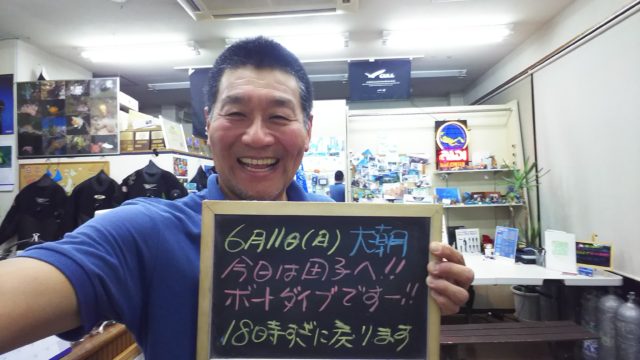 6月11日(日) 大潮
今日は田子へ!!
ボートダイブですー!!
18時すぎに戻ります
GULL